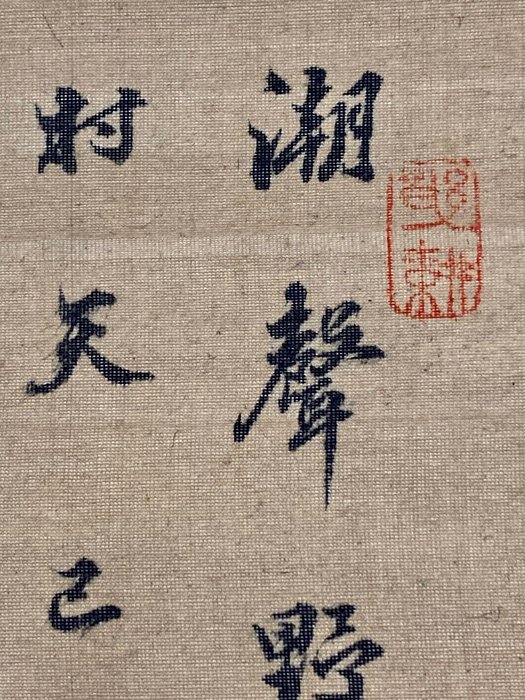 潮聲野
村天已